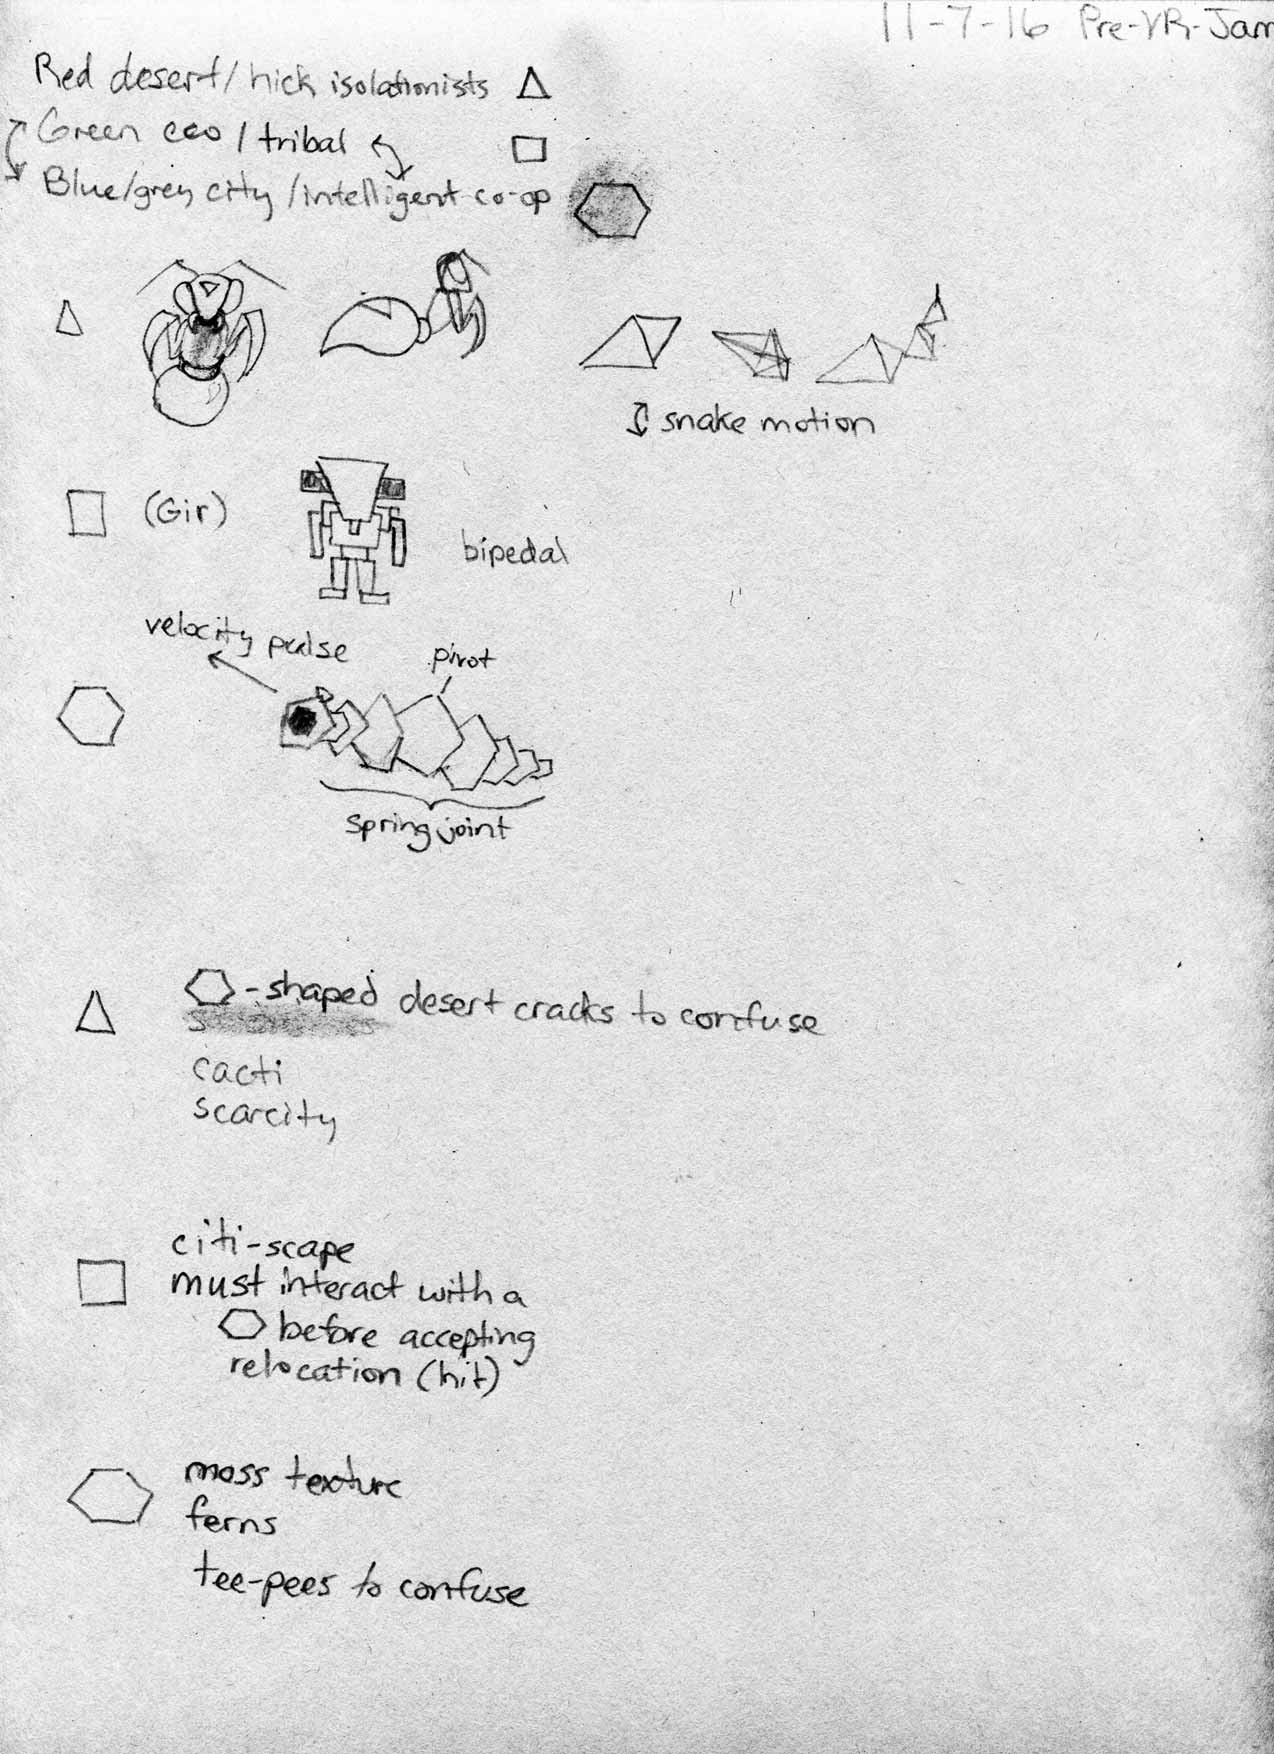 11-7-16 Pre-VR-Jam
Red desert/hick isolationists
Green eco/tribal
Blue/grey city/intelligent co-op
snake motion
(Gir)
bipedal
velocity pulse
pivot
spring joint
-shaped desert cracks to confuse
cacti
scarcity
citi-scape
must interact with a
before accepting
relocation (hit)
moss texture
ferns
tee-pees to confuse